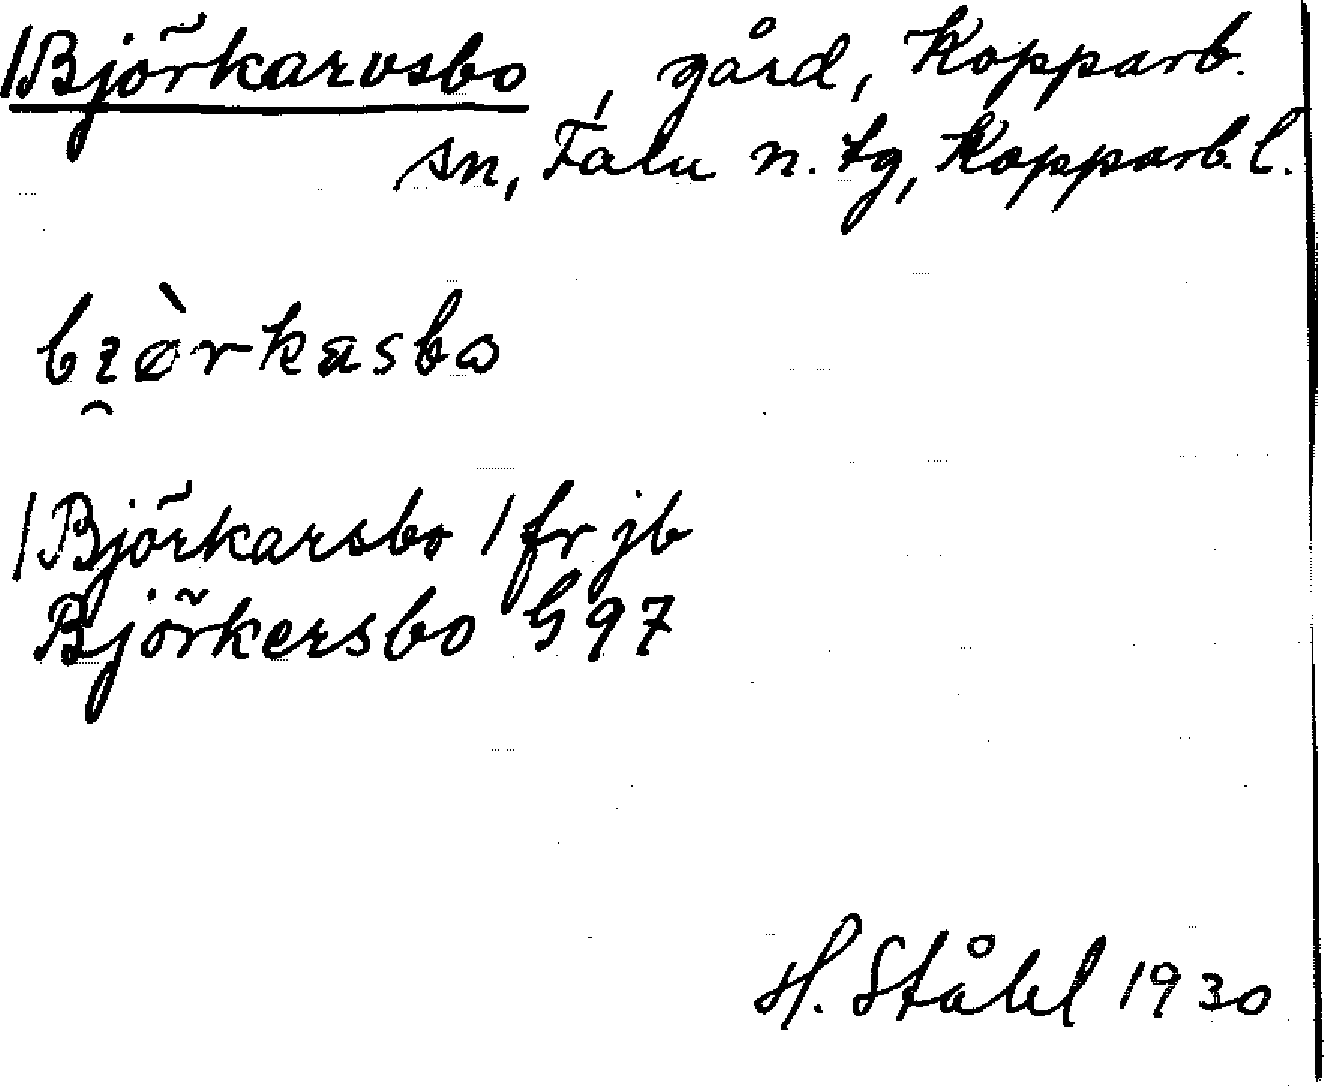 /Björkarvsbo, gård, Kopparb.
sn, Falu n. tg, Kopparb. l.
bi̯òrkasbo
/Björkarsbo / fr jb
Björkersbo G97
H. Ståhl 1930